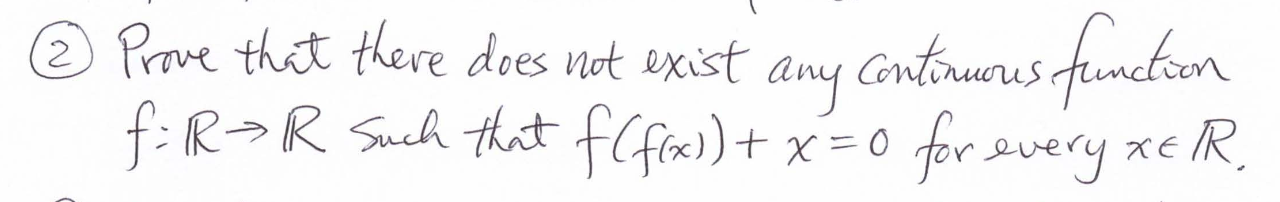 ② Prove that there does not exist any continuous function
f: ℝ → ℝ such that f(f(x)) + x = 0 for every x ∈ ℝ.